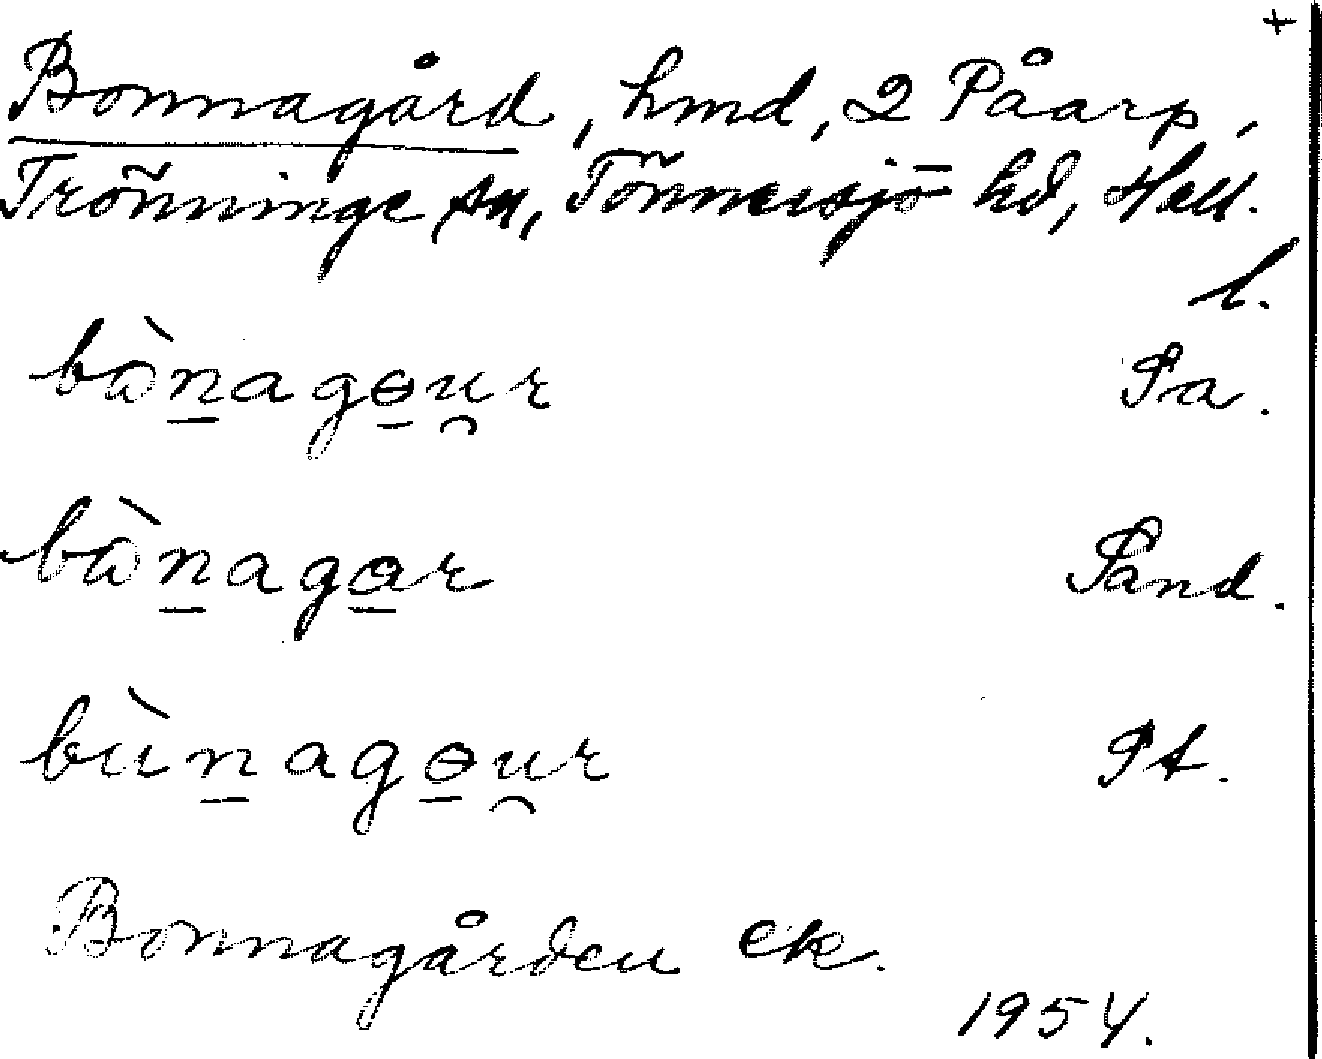 +
Bonnagård, hmd, 2 Påarp,
Trönninge sn, Tönnersjö hd, Hall.
l.
bὼn̲agɵ̲u̯r Pa.
bὼn̲aga̲r Pand.
bùn̲agɵ̲u̯r Pt.
Bonnagården ek.
1954.